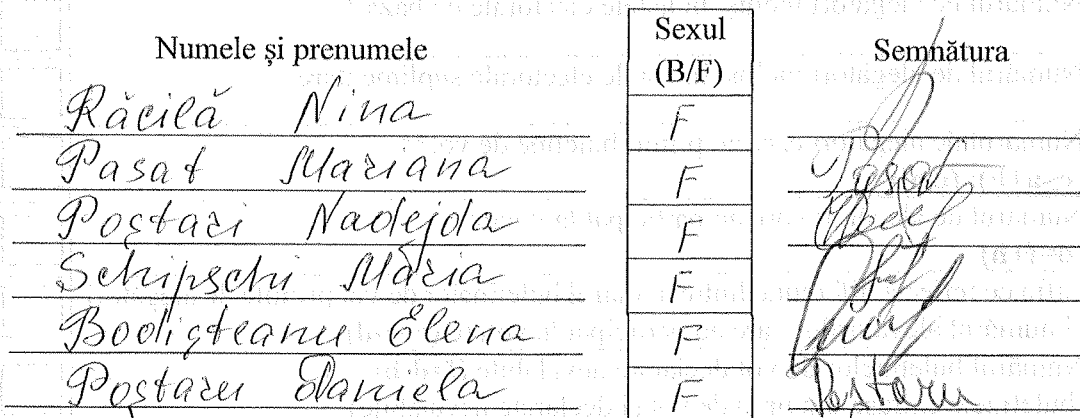 Numele și prenumele Sexul (B/F) Semnătura
Răcilă Nina F
Pasat Mariana F Pasat
Poștari Nadejda F
Schipschi Maria F
Bodișteanu Elena F
Poștaru Daniela F Poștaru